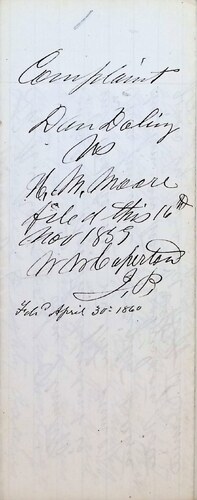 Complaint
Dan Doling
vs
H. M. Moore
filed this 16th
Nov 1859
W W Caperton
J. P.
Fild April 30: 1860